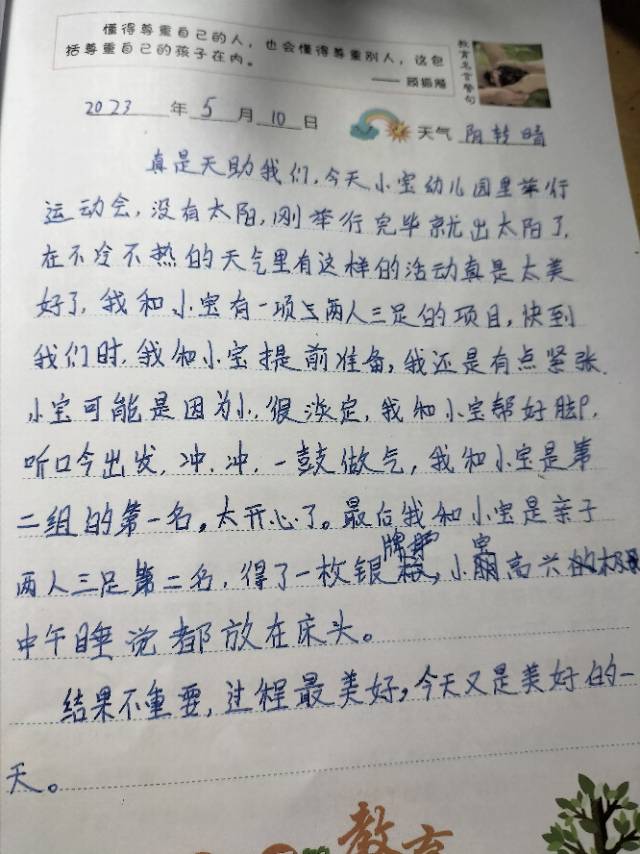 懂得尊重自己的人，也会懂得尊重别人，这包
括尊重自己的孩子在内。
—— 顾振飏
教育名言警句
2023 年 5 月 10 日
天气 阴转晴
真是天助我们，今天小宝幼儿园里举行
运动会，没有太阳，刚举行完毕就出太阳了，
在不冷不热的天气里有这样的活动真是太美
好了，我和小宝有一项是两人三足的项目，快到
我们时，我和小宝提前准备，我还是有点紧张，
小宝可能是因为小，很淡定，我和小宝帮好脚，
听口令出发，冲，冲，一鼓做气，我和小宝是第
二组的第一名。太开心了。最后我和小宝是亲子
两人三足第二名，得了一枚银牌，小宝高兴的
中午睡觉都放在床头。
结果不重要，过程最美好，今天又是美好的一
天。
教育